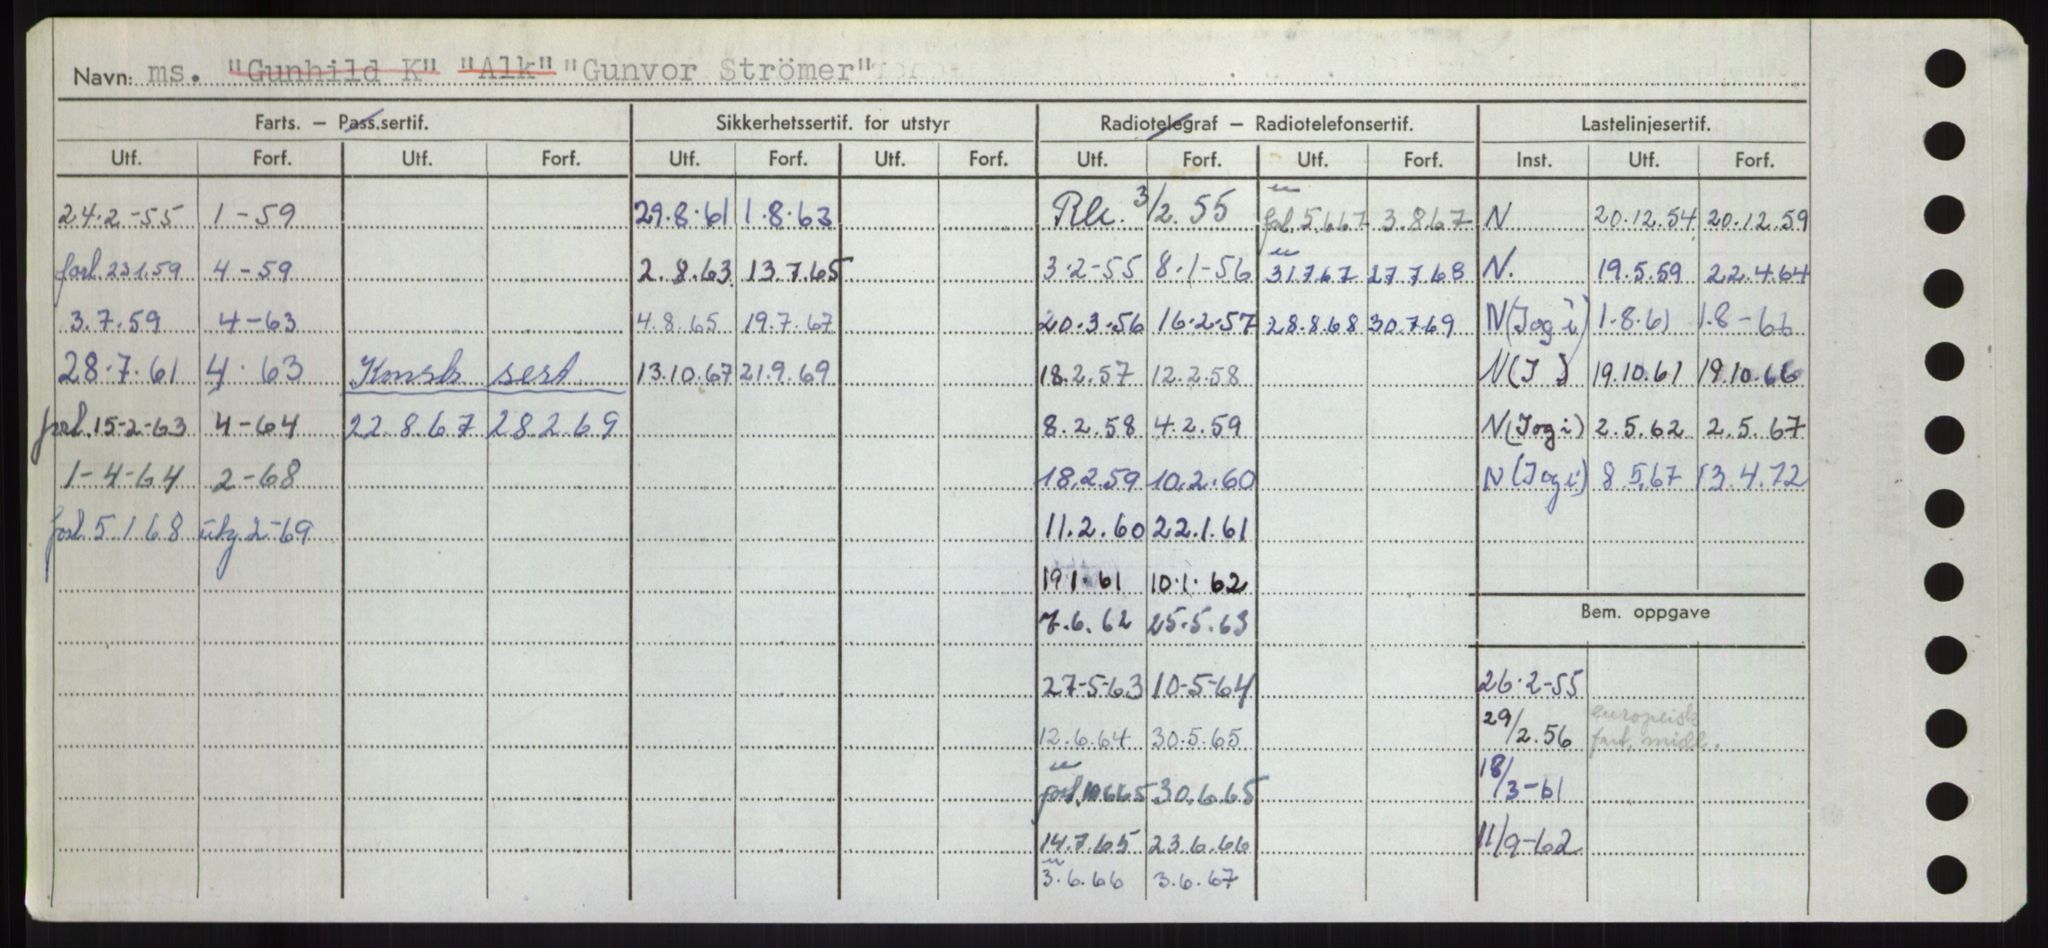 Navn: ms. "Gunhild K" "Alk" "Gunvor Strömer"
Farts. — Pass.sertif. Sikkerhetssertif. for utstyr Radiotelegraf — Radiotelefonsertif. Lastelinjesertif.
Utf. Forf. Utf. Forf. Utf. Forf. Utf. Forf. Utf. Forf. Utf. Forf. Inst. Utf. Forf.
24.2-55 1-59 29.8.61 1.8.63 3/2.55 forl. 5.6.67 3.8.67 N 20.12.54 20.12.59
forl. 23.1.59 4-59 2.8.63 13.7.65 3.2-55 8.1-56 31.7.67 27.7.68 N. 19.5.59 22.4.64
3.7.59 4-63 4.8.65 19.7.67 20.3.56 16.2.57 28.8.68 30.7.69 N(Jogi) 1.8.61 1.8-66
28.7.61 4.63 Kmsb sert 13.10.67 21.9.69 18.2.57 12.2.58 N(J ) 19.10.61 19.10.66
forl. 15-2-63 4-64 22.8.67 28.2.69 8.2.58 4.2.59 N(Jogi) 2.5.62 2.5.67
1-4-64 2-68 18.2.59 10.2.60 N(Jogi) 8.5.67 13.4.72
forl. 5.1.68 utg. 2-69 11.2.60 22.1.61
19.1.61 10.1.62
Bem. oppgave
7.6.62 25.5.63
27-5-63 10-5-64 26.2-55
12.6.64 30.5.65 29/2.56 europeisk fart, midl.
forl. 10.6.65 30.6.65 18/3-61
14.7.65 23.6.66 11/9-62
3.6.66 3.6.67